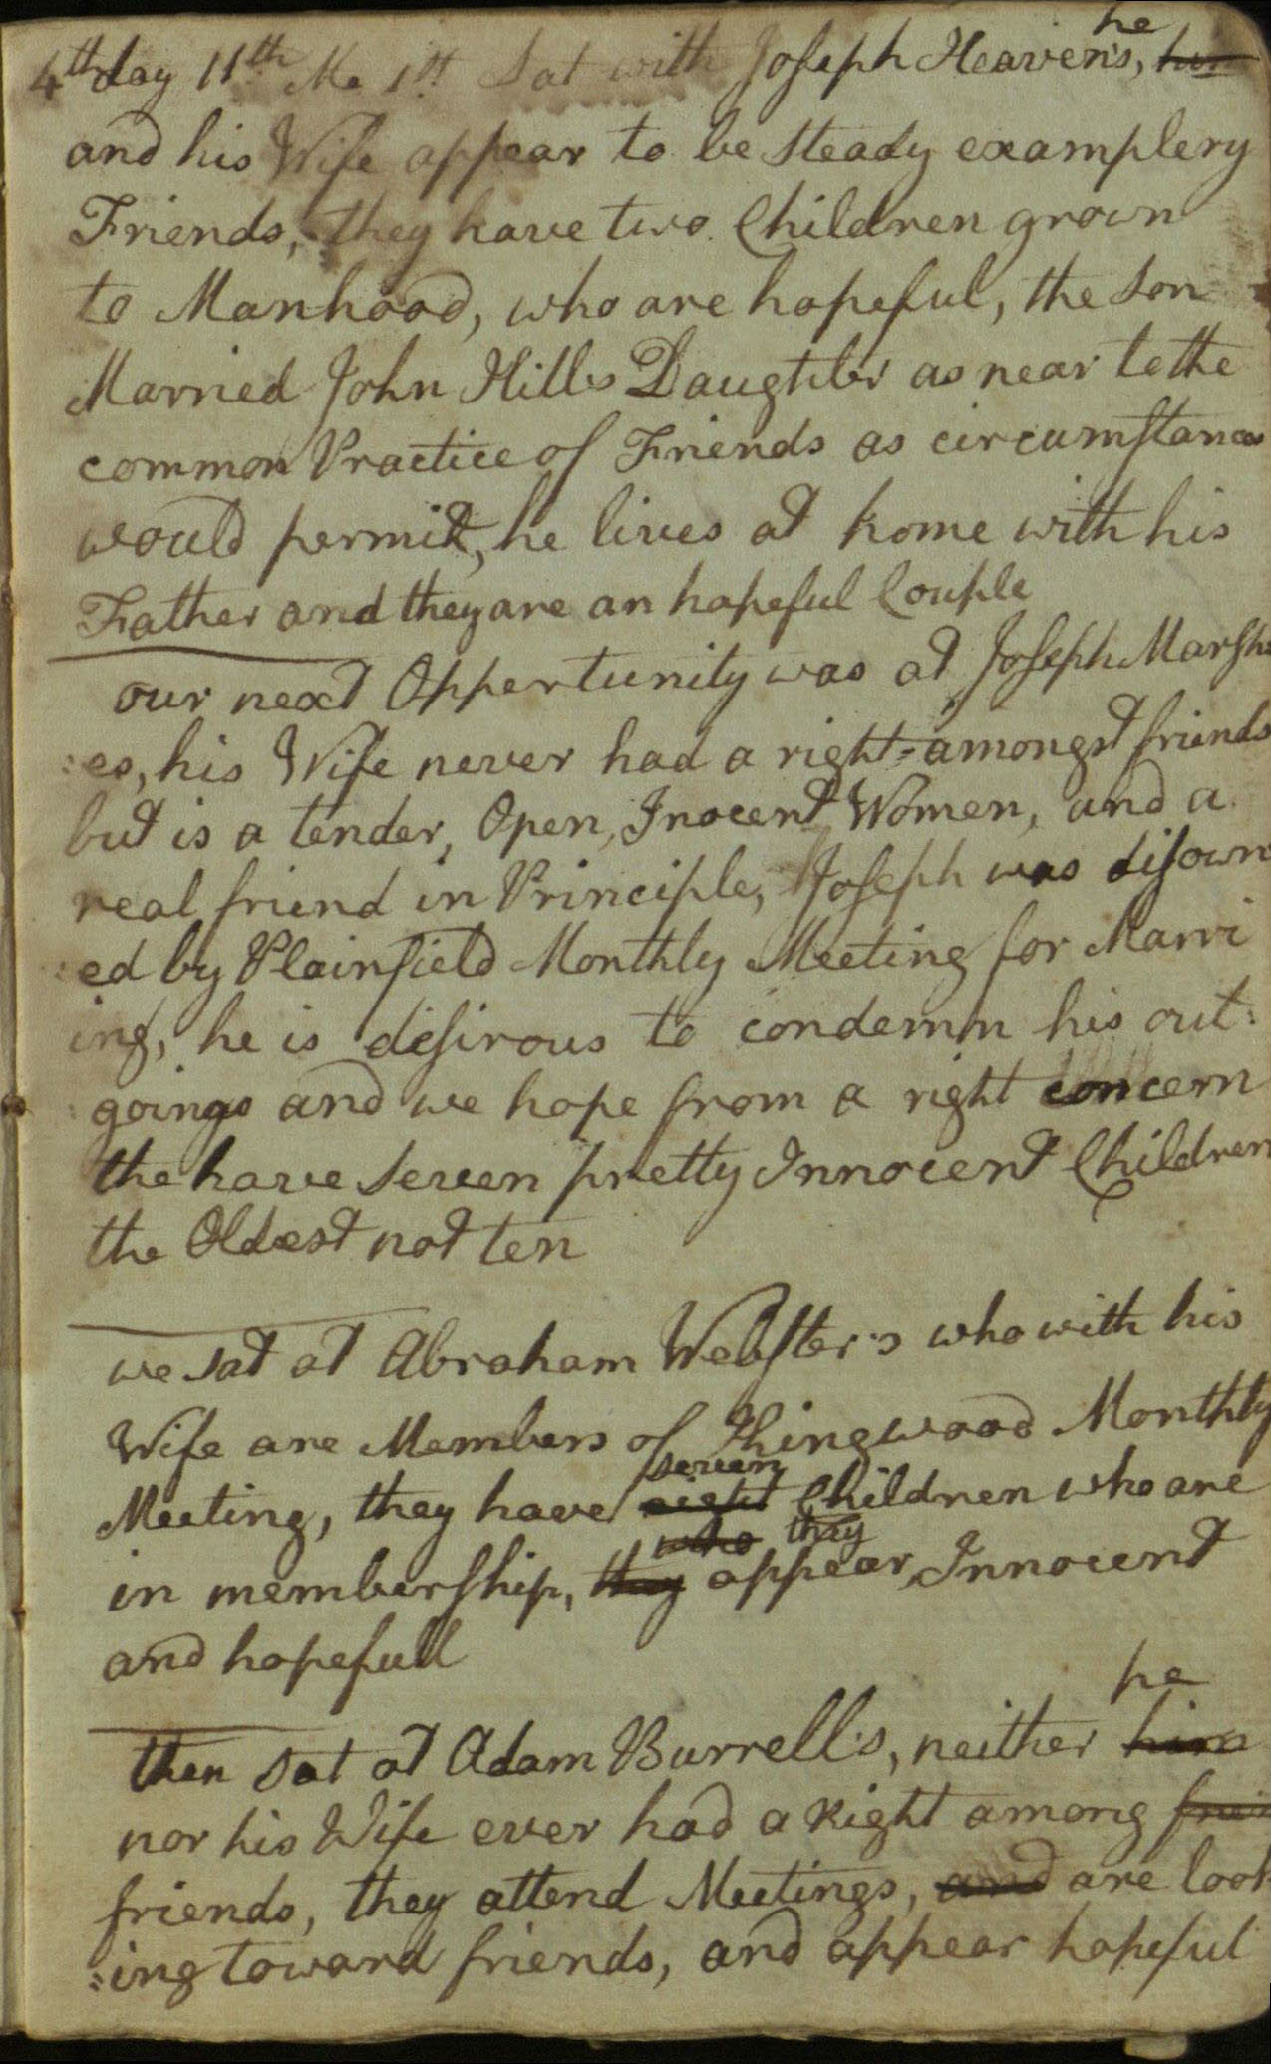 4th day 11th Mo 1st Sat with Joseph Heaven's, he him
and his Wife appear to be steady examplery
Friends, they have two Children grown
to Manhood, who are hopeful, the Son
Married John Hills Daughter as near to the
common Practice of Friends as circumstances
would permit, he lives at home with his
Father and they are an hopeful Couple
our next Oppertunity was at Joseph Marsh
:es, his Wife never had a right amongst friends
but is a tender, Open, Inocent Women, and a
real friend in Principle, Joseph was disown
:ed by Plainfield Monthly Meeting for Marri
ing, he is desirous to condemn his out:
:goings and we hope from a right concern
the have Seven pretty Innocent Children
the Oldest not ten
we sat at Abraham Webster's who with his
Wife are Members of Thingwood Monthly
Meeting, they have eight seven Children who are
in membership, they who they appear Innocent
and hopefull
then Sat at Adam Burrell's, neither him he
nor his Wife ever had a Right among frei
friends, they attend Meetings, and are look
:ing toward friends, and appear hopeful